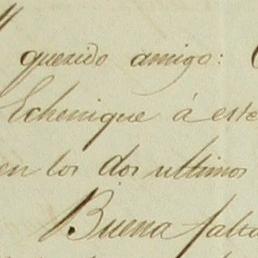 querido amigo:
Echenique á este
en los dos ultimos
Buena falta